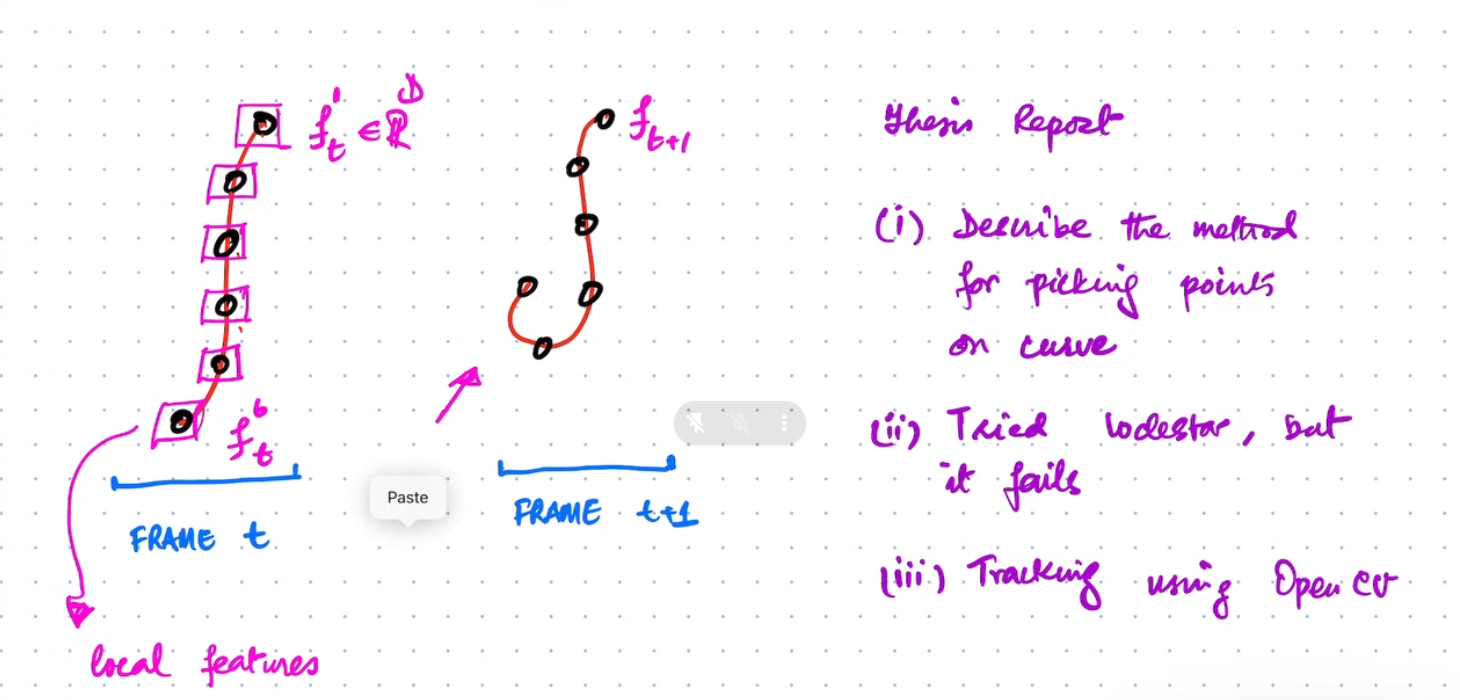 f_t^1 ∈ ℝ^D
f_{t+1}
f_t^6
FRAME t
FRAME t+1
local features
Paste
Thesis Report
(i) Describe the method
for picking points
on curve
(ii) Tried lodestar, but
it fails
(iii) Tracking using Open CV